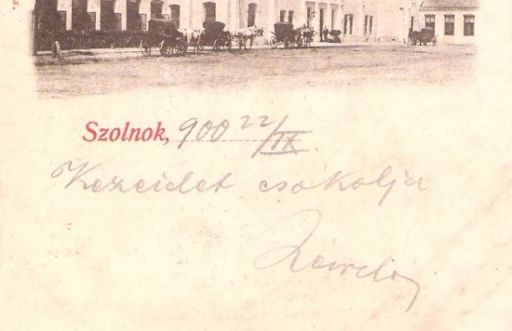 Szolnok, 900 22/IX.
Kezeidet csókolja